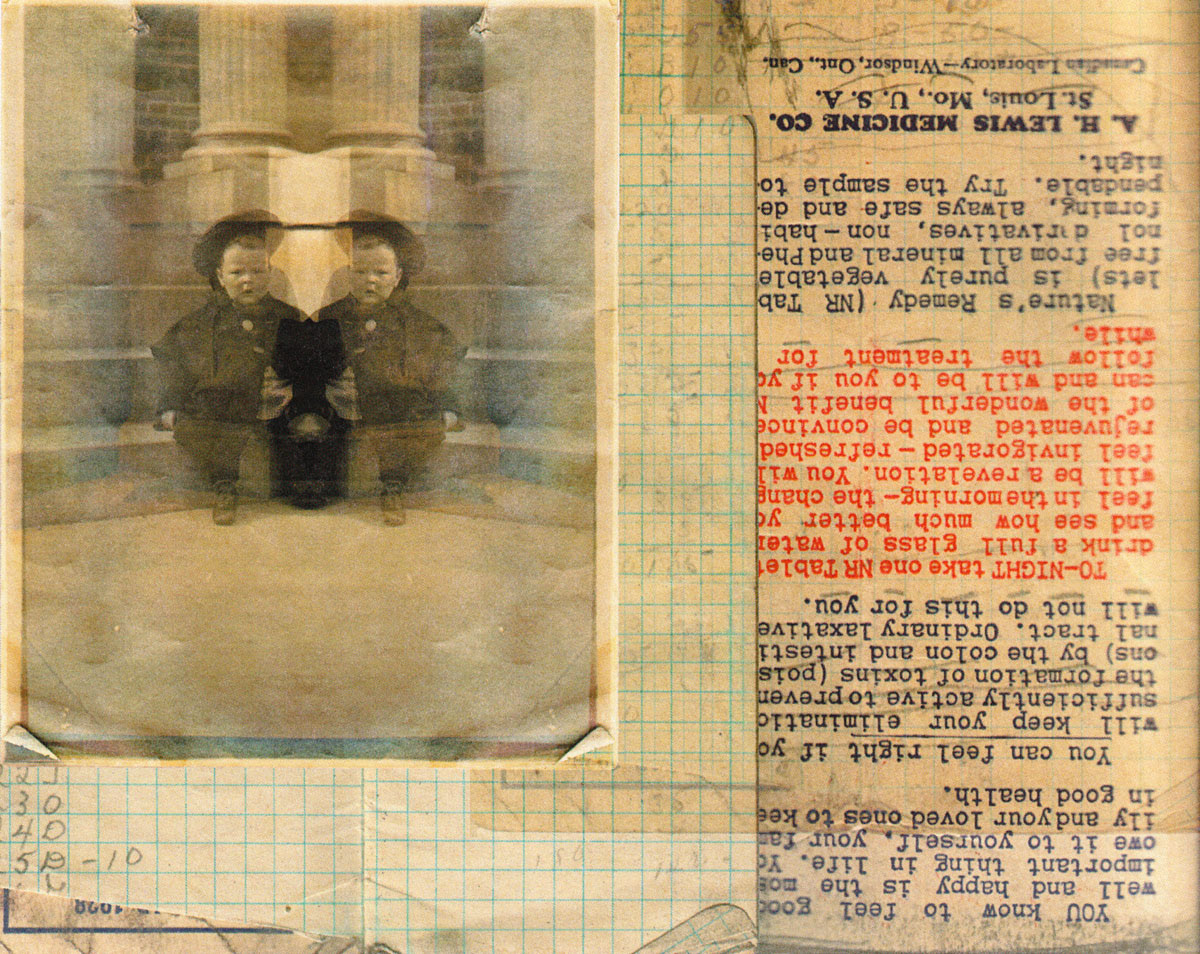 YOU know to feel good
well and happy is the mos
important thing in life. Yo
owe it to yourself, your fam
ily and your loved ones to kee
in good health.
You can feel right if yo
will keep your eliminatio
sufficiently active to preven
the formation of toxins (pois
ons) by the colon and intesti
nal tract. Ordinary laxative
will not do this for you.
TO-NIGHT take one NR Tablet
drink a full glass of water
and see how much better yo
feel in the morning—the chang
will be a revelation. You wil
feel invigorated—refreshed
rejuvenated and be convince
of the wonderful benefit N
can and will be to you if yo
follow the treatment for
while.
Nature's Remedy (NR Tab
lets) is purely vegetable
free from all mineral and Phe
nol dirivatives, non-habi
forming, always safe and de-
pendable. Try the sample to-
night.
A. H. LEWIS MEDICINE CO.
St. Louis, Mo., U. S. A.
Canadian Laboratory—Windsor, Ont., Can.
510
010
30
40
50 -10
1928